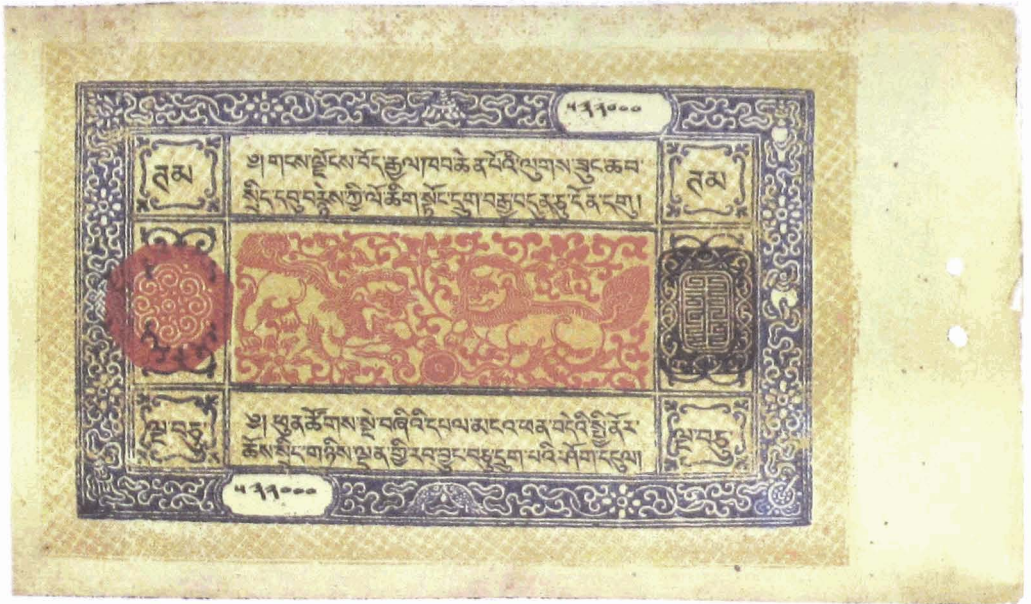 ཊམ
༄༅། །གངས་ལྗོངས་བོད་རྒྱལ་ཁབ་ཆེན་པོའི་ལུགས་ཟུང་ཆབ་
སྲིད་དབུ་བརྙེས་ཀྱི་ལོ་ཆིག་སྟོང་དྲུག་བརྒྱ་བདུན་ཅུ་དོན་དགུ།
ཊམ
ལྔ་བཅུ་
༄༅། ཕུན་ཚོགས་སྡེ་བཞིའི་དཔལ་མངའ་ཕན་བདེའི་སྤྱི་ནོར་
ཆོས་སྲིད་གཉིས་ལྡན་གྱི་རབ་བྱུང་བཅུ་དྲུག་པའི་ཤོག་དངུལ།
ལྔ་བཅུ་